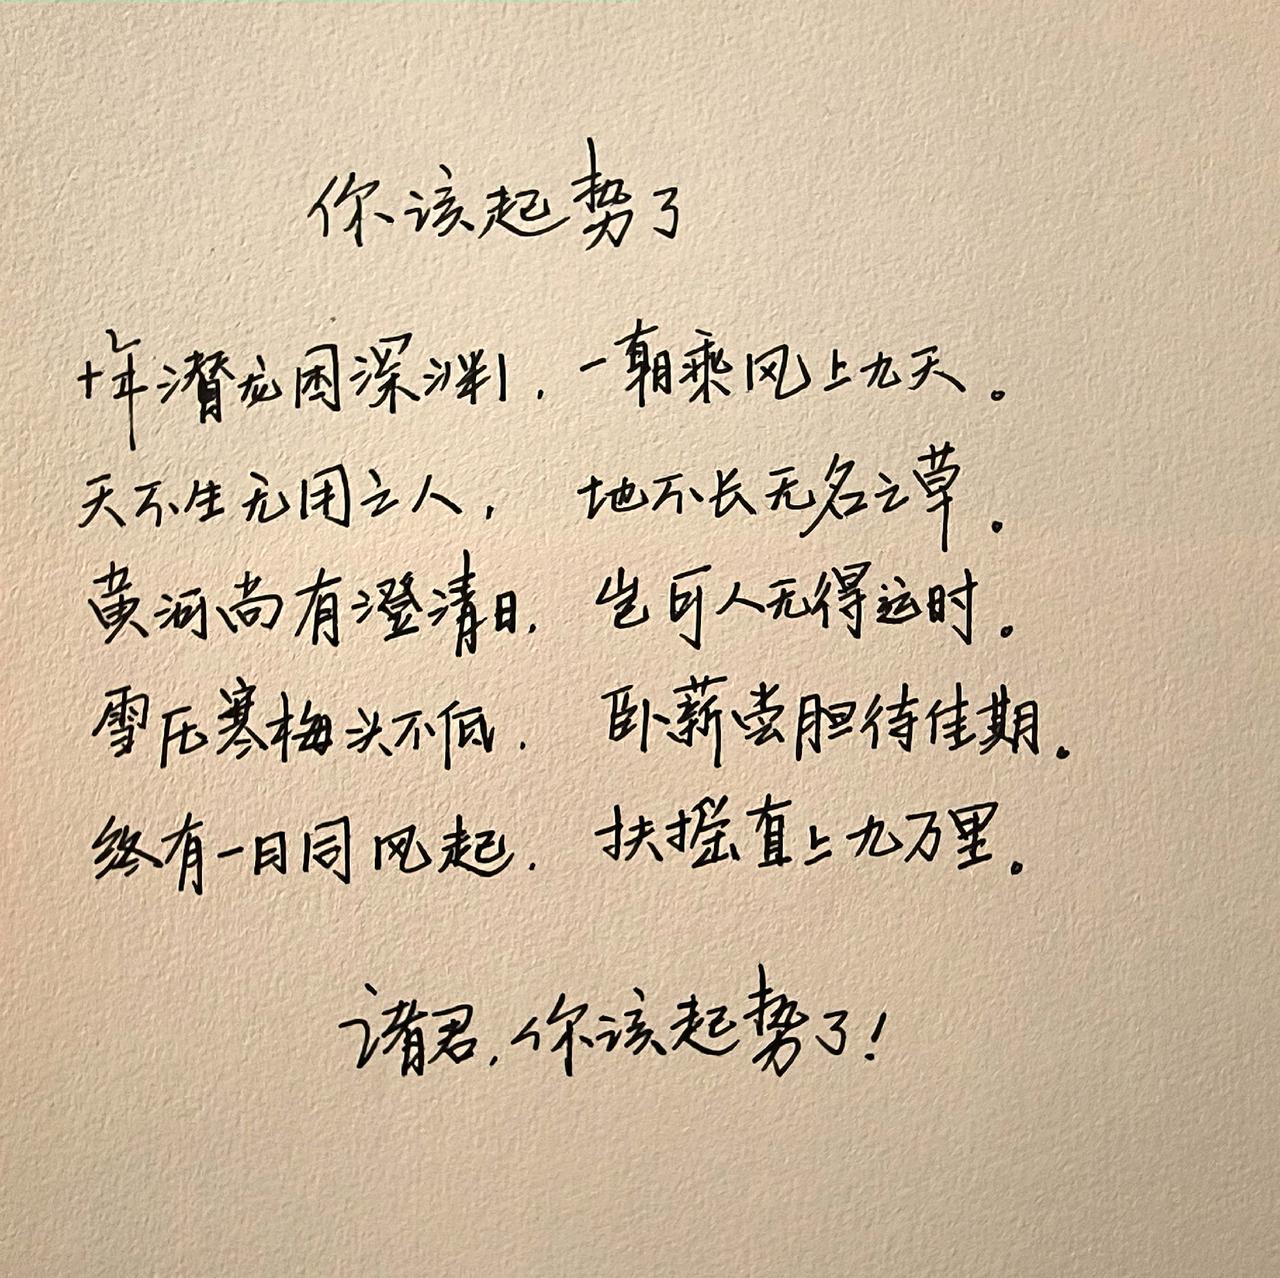 你该起势了
十年潜龙困深渊，一朝乘风上九天。
天不生无用之人，地不长无名之草。
黄河尚有澄清日，岂可人无得运时。
雪压寒梅头不低，卧薪尝胆待佳期。
终有一日同风起，扶摇直上九万里。
诸君，你该起势了！